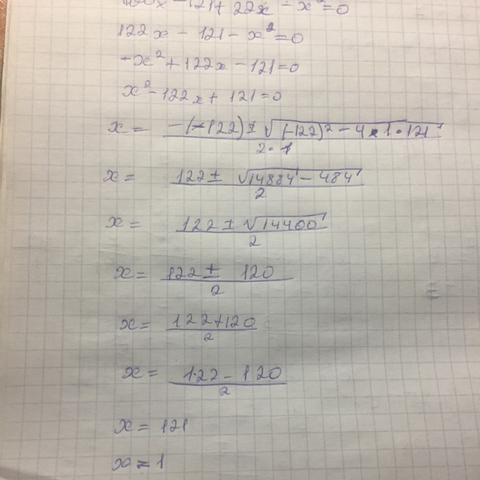 -121+22x-x²=0
122x-121-x²=0
-x²+122x-121=0
x²-122x+121=0
x= -(-122)±√(-122)²-4•1•121 / 2•1
x= 122±√14884-484 / 2
x= 122±√14400 / 2
x= 122±120 / 2
x= 122+120 / 2
x= 122-120 / 2
x=121
x=1